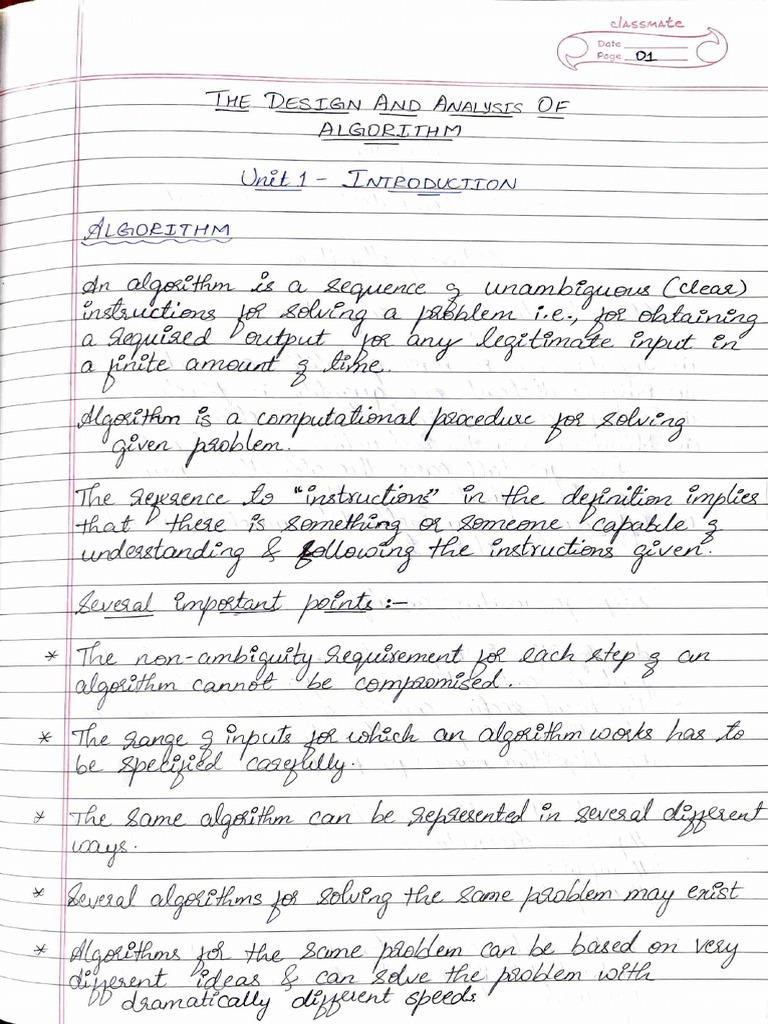 classmate
Date
Page 01
THE DESIGN AND ANALYSIS OF
ALGORITHM
Unit 1 - INTRODUCTION
ALGORITHM
An algorithm is a sequence of unambiguous (clear)
instructions for solving a problem i.e., for obtaining
a required output for any legitimate input in
a finite amount of time.
Algorithm is a computational procedure for solving
given problem.
The refrence to "instructions" in the definition implies
that there is something or someone capable of
understanding & following the instructions given.
Several important points :-
* The non-ambiguity requirement for each step of an
algorithm cannot be compromised.
* The range of inputs for which an algorithm works has to
be specified carefully.
* The same algorithm can be represented in several different
ways.
* Several algorithms for solving the same problem may exist
* Algorithms for the same problem can be based on very
different ideas & can solve the problem with
dramatically different speeds